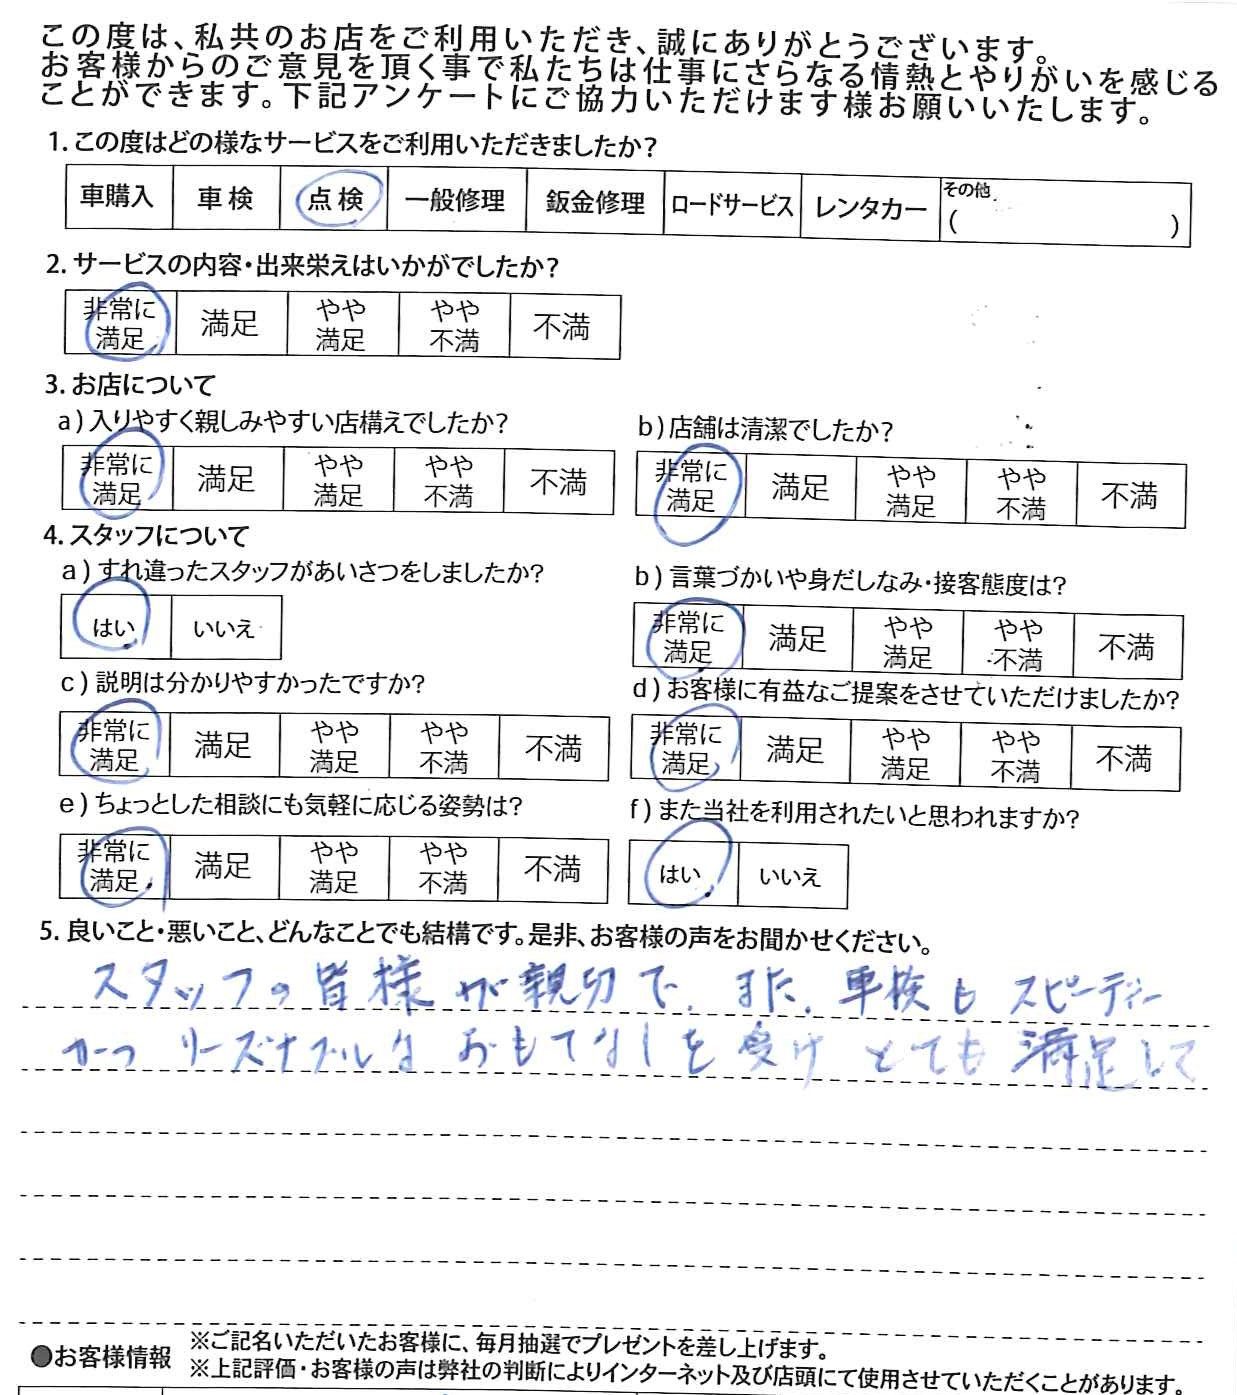 この度は、私共のお店をご利用いただき、誠にありがとうございます。
お客様からのご意見を頂く事で私たちは仕事にさらなる情熱とやりがいを感じる
ことができます。下記アンケートにご協力いただけます様お願いいたします。
1. この度はどの様なサービスをご利用いただきましたか?
車購入 車検 点検 一般修理 鈑金修理 ロードサービス レンタカー その他 ( )
2. サービスの内容・出来栄えはいかがでしたか?
非常に満足 満足 やや満足 やや不満 不満
3. お店について
a) 入りやすく親しみやすい店構えでしたか?
非常に満足 満足 やや満足 やや不満 不満
b) 店舗は清潔でしたか?
非常に満足 満足 やや満足 やや不満 不満
4. スタッフについて
a) すれ違ったスタッフがあいさつをしましたか?
はい いいえ
b) 言葉づかいや身だしなみ・接客態度は?
非常に満足 満足 やや満足 やや不満 不満
c) 説明は分かりやすかったですか?
非常に満足 満足 やや満足 やや不満 不満
d) お客様に有益なご提案をさせていただけましたか?
非常に満足 満足 やや満足 やや不満 不満
e) ちょっとした相談にも気軽に応じる姿勢は?
非常に満足 満足 やや満足 やや不満 不満
f) また当社を利用されたいと思われますか?
はい いいえ
5. 良いこと・悪いこと、どんなことでも結構です。是非、お客様の声をお聞かせください。
スタッフの皆様が親切で、また、車検もスピーディー
かつリーズナブルなおもてなしを受けとても満足して
●お客様情報
※ご記名いただいたお客様に、毎月抽選でプレゼントを差し上げます。
※上記評価・お客様の声は弊社の判断によりインターネット及び店頭にて使用させていただくことがあります。